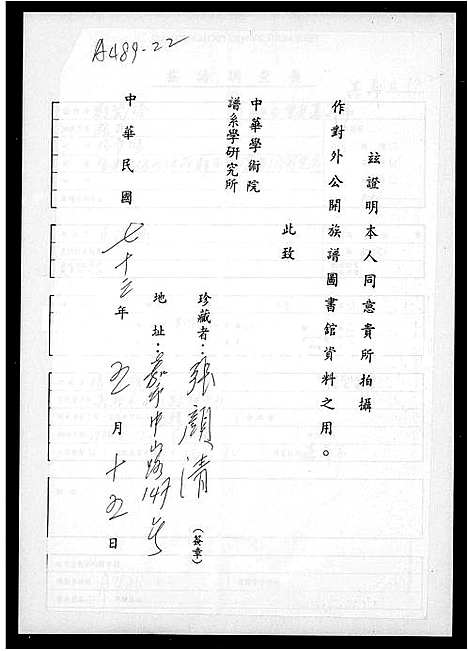 A489-22
茲證明本人同意貴所拍攝
作對外公開族譜圖書館資料之用。
此致
中華學術院
譜系學研究所
珍藏者：張顏清（簽章）
地址：嘉市中山路149号
中華民國七十三年五月十五日